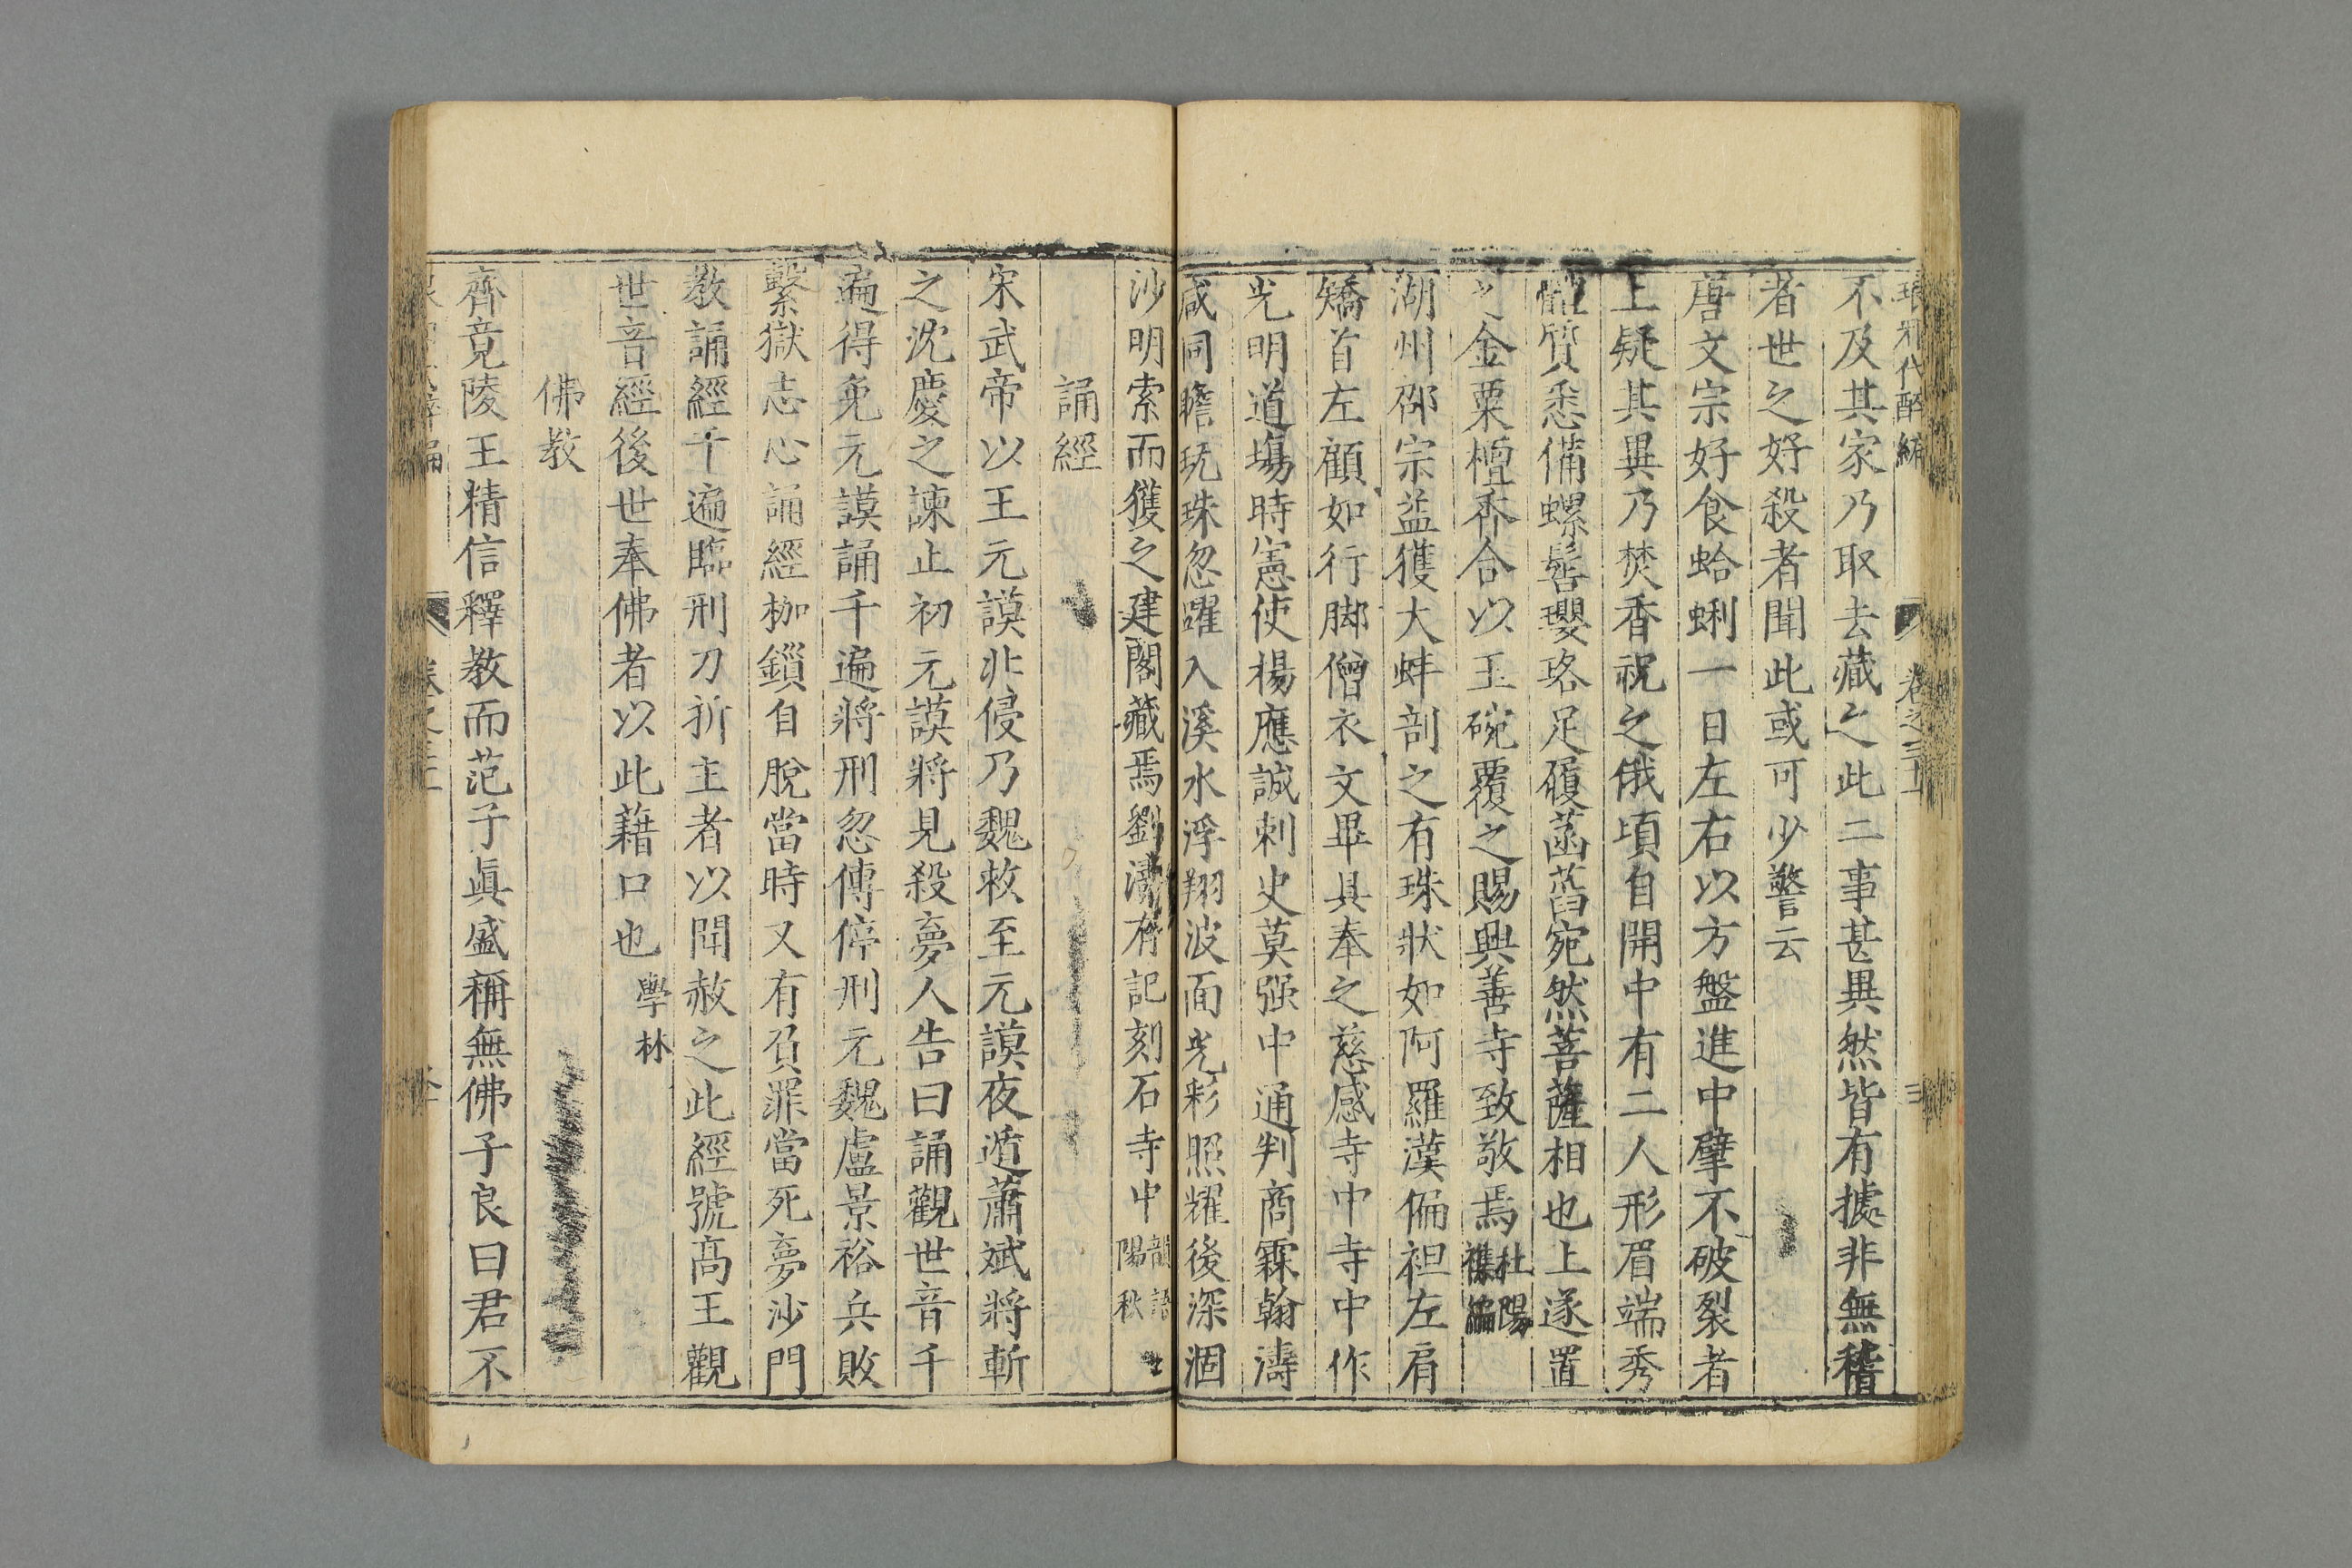 琅邪代醉編 卷之三十 三
不及其家乃取去藏之此二事甚異然皆有據非無稽
者世之好殺者聞此或可少警云
唐文宗好食蛤蜊一日左右以方盤進中擘不破裂者
上疑其異乃焚香祝之俄頃自開中有二人形眉端秀
體質悉備螺髻瓔珞足履菡萏宛然菩薩相也上遂置
之金粟檀香合以玉碗覆之賜興善寺致敬焉杜陽雜編
湖州邵宗益獲大蚌剖之有珠狀如阿羅漢偏袒左肩
矯首左顧如行脚僧衣文畢具奉之慈感寺中寺中作
光明道塲時憲使楊應誠刺史莫强中通判商霖翰濤
咸同瞻玩珠忽躍入溪水浮翔波面光彩照耀後深涸
沙明索而獲之建閣藏焉劉濤有記刻石寺中韻語陽秋
誦經
宋武帝以王元謨北侵乃魏救至元謨夜遁蕭斌將斬
之沈慶之諫止初元謨將見殺夢人告曰誦觀世音千
遍得免元謨誦千遍將刑忽傳停刑元魏盧景裕兵敗
繫獄志心誦經枷鎖自脫當時又有負罪當死夢沙門
教誦經千遍臨刑刀折主者以聞赦之此經號髙王觀
世音經後世奉佛者以此藉口也學林
佛教
齊竟陵王精信釋教而范子眞盛稱無佛子良曰君不